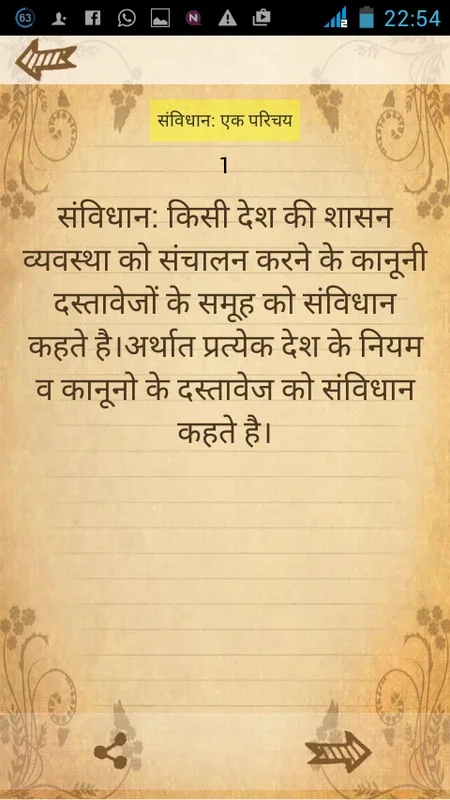 63
22:54
संविधान: एक परिचय
1
संविधान: किसी देश की शासन
व्यवस्था को संचालन करने के कानूनी
दस्तावेजों के समूह को संविधान
कहते है।अर्थात प्रत्येक देश के नियम
व कानूनो के दस्तावेज को संविधान
कहते है।